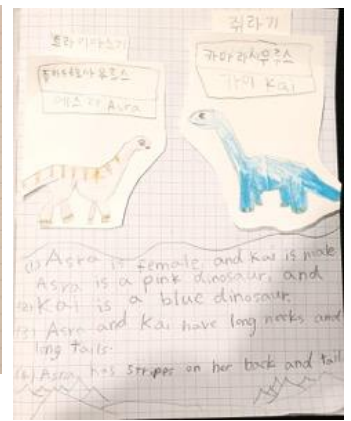 쥐라기
Asra
카마라사우루스
카이 Kai
(1) Asra is female and Kai is male
Asra is a pink dinosaur, and
(2) Kai is a blue dinosaur.
(3) Asra and Kai have long necks and
long tails.
(4) Asra has stripes on her back and tail